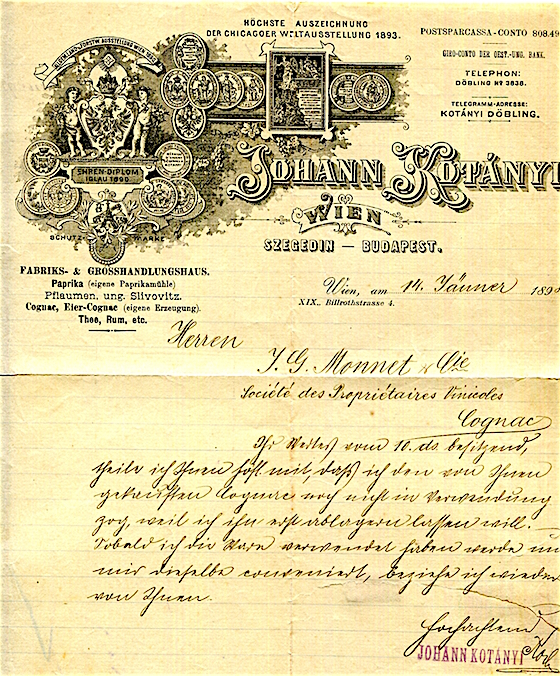 HÖCHSTE AUSZEICHNUNG
DER CHICAGOER WELTAUSSTELLUNG 1893.
POSTSPARCASSA-CONTO 808.49
GIRO-CONTO DER OEST.-UNG. BANK.
TELEPHON:
DÖBLING Nº 3636.
TELEGRAMM-ADRESSE:
KOTÁNYI DÖBLING.
EHREN-DIPLOM
IGLAU 1890
JOHANN KOTÁNYI
WIEN
SZEGEDIN — BUDAPEST.
SCHUTZ MARKE
FABRIKS- & GROSSHANDLUNGSHAUS.
Paprika (eigene Paprikamühle)
Pflaumen, ung. Slivovitz.
Cognac, Eier-Cognac (eigene Erzeugung).
Thee, Rum, etc.
Wien, am 14. Jänner 189
XIX., Billrothstrasse 4.
Herren
J. G. Monnet & Cie
Société des Propriétaires Vinicoles
Cognac
Ihr Wertes vom 10. ds. besitzend,
theile ich Ihnen höfl. mit, daß ich den von Ihnen
gekauften Cognac noch nicht in Verwendung
zog, weil ich ihn erst ablagern lassen will. —
Sobald ich die Ware verwendet haben werde un
mir dieselbe conveniert, beziehe ich wieder
von Ihnen.
Hochachtend
JOHANN KOTÁNYI